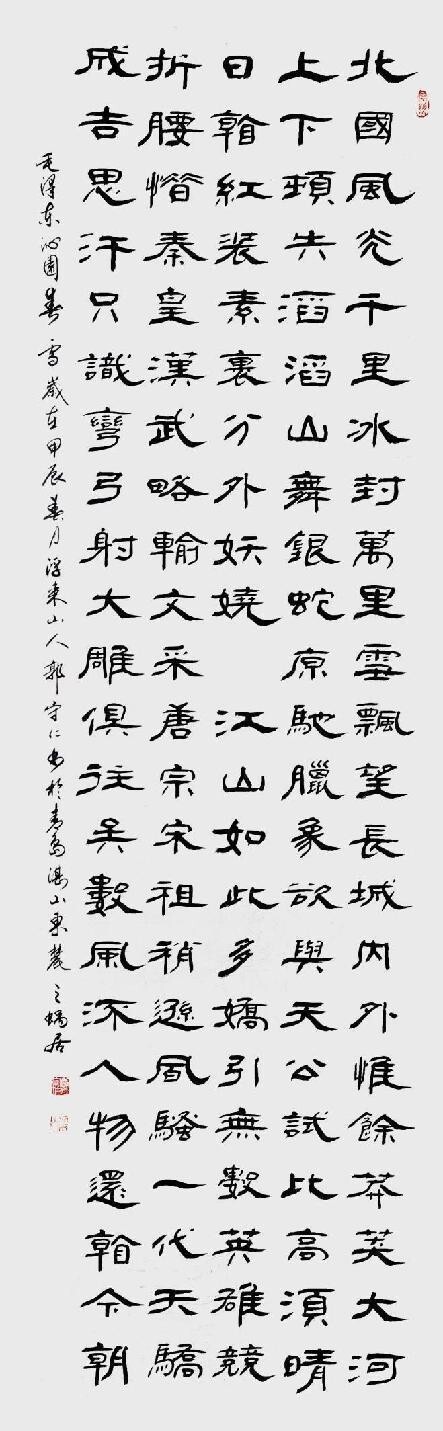 北國風光千里冰封萬里雪飄望長城內外惟餘莽莽大河
上下頓失滔滔山舞銀蛇原馳臘象欲與天公試比高須晴
日看紅裝素裹分外妖嬈 江山如此多嬌引無數英雄競
折腰惜秦皇漢武略輸文采唐宗宋祖稍遜風騷一代天驕
成吉思汗只識彎弓射大雕俱往矣數風流人物還看今朝
毛澤东沁園春 雪 歲在甲辰春月浮来山人郭守仁书於青島湛山東麓之蝸居